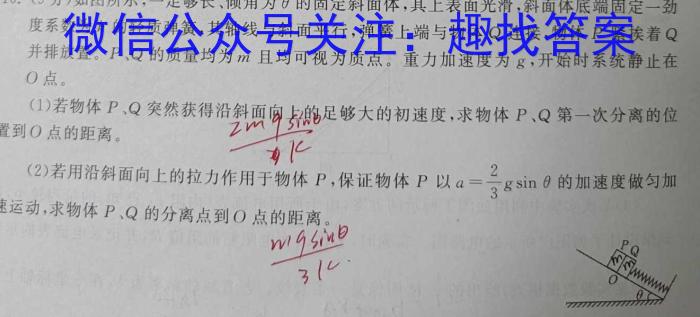 足够长、倾角为θ的固定斜面体,其上表面光滑,斜面体底端固定一劲
微信公众号关注:趣找答案
并排放置。P、Q的质量均为m且均可视为质点。重力加速度为g,开始时系统静止在
O点。
(1)若物体P、Q突然获得沿斜面向上的足够大的初速度,求物体P、Q第一次分离的位
置到O点的距离。
2mg sinθ
K
(2)若用沿斜面向上的拉力作用于物体P,保证物体P以a=2/3 g sin θ的加速度做匀加
速运动,求物体P、Q的分离点到O点的距离。
mg sinθ
3K
P Q
O
θ